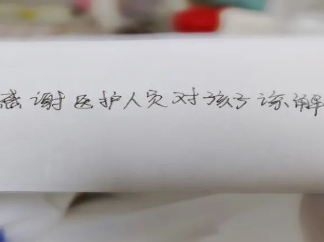 感谢医护人员对孩子谅解